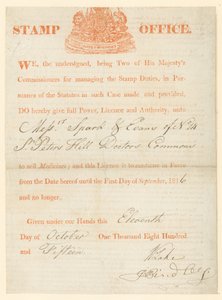 STAMP OFFICE.
WE, the undersigned, being Two of His Majesty's
Commissioners for managing the Stamp Duties, in Pur-
suance of the Statutes in such Case made and provided,
DO hereby give full Power, Licence and Authority, unto
Mess.rs Spark & Evans of No. 24
St. Peters Hill Doctors Commons
to sell Medicines; and this Licence is to continue in Force
from the Date hereof until the First Day of September, 1816
and no longer.
Given under our Hands this Eleventh
Day of October One Thousand Eight Hundred
and Fifteen